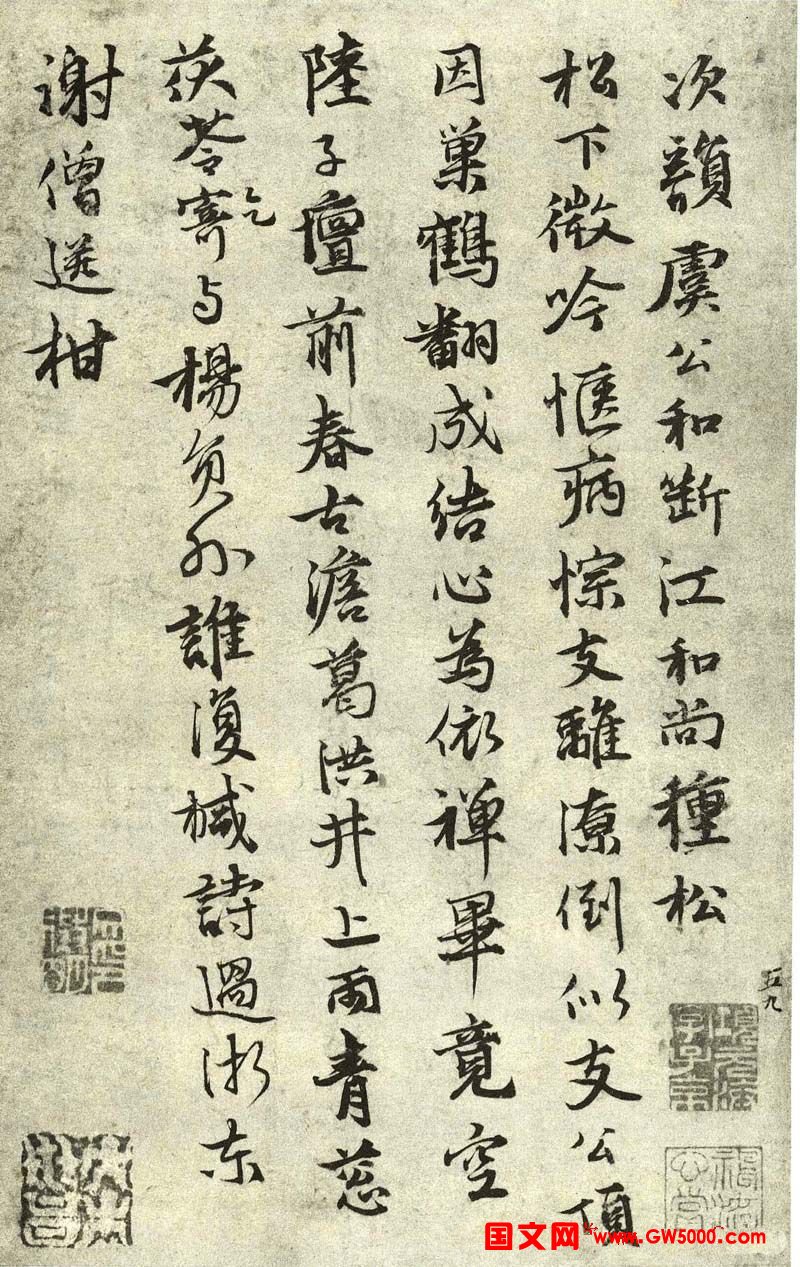 次韻虞公和斷江和尚種松
松下微吟愜病悰支離潦倒似支公頂
因巢鶴翻成結心為依禪畢竟空
陸子壇前春古澹葛洪井上雨青葱
茯苓寄乞与楊負外誰復椷詩過浙东
謝僧送柑
五九
国文网 www.GW5000.com